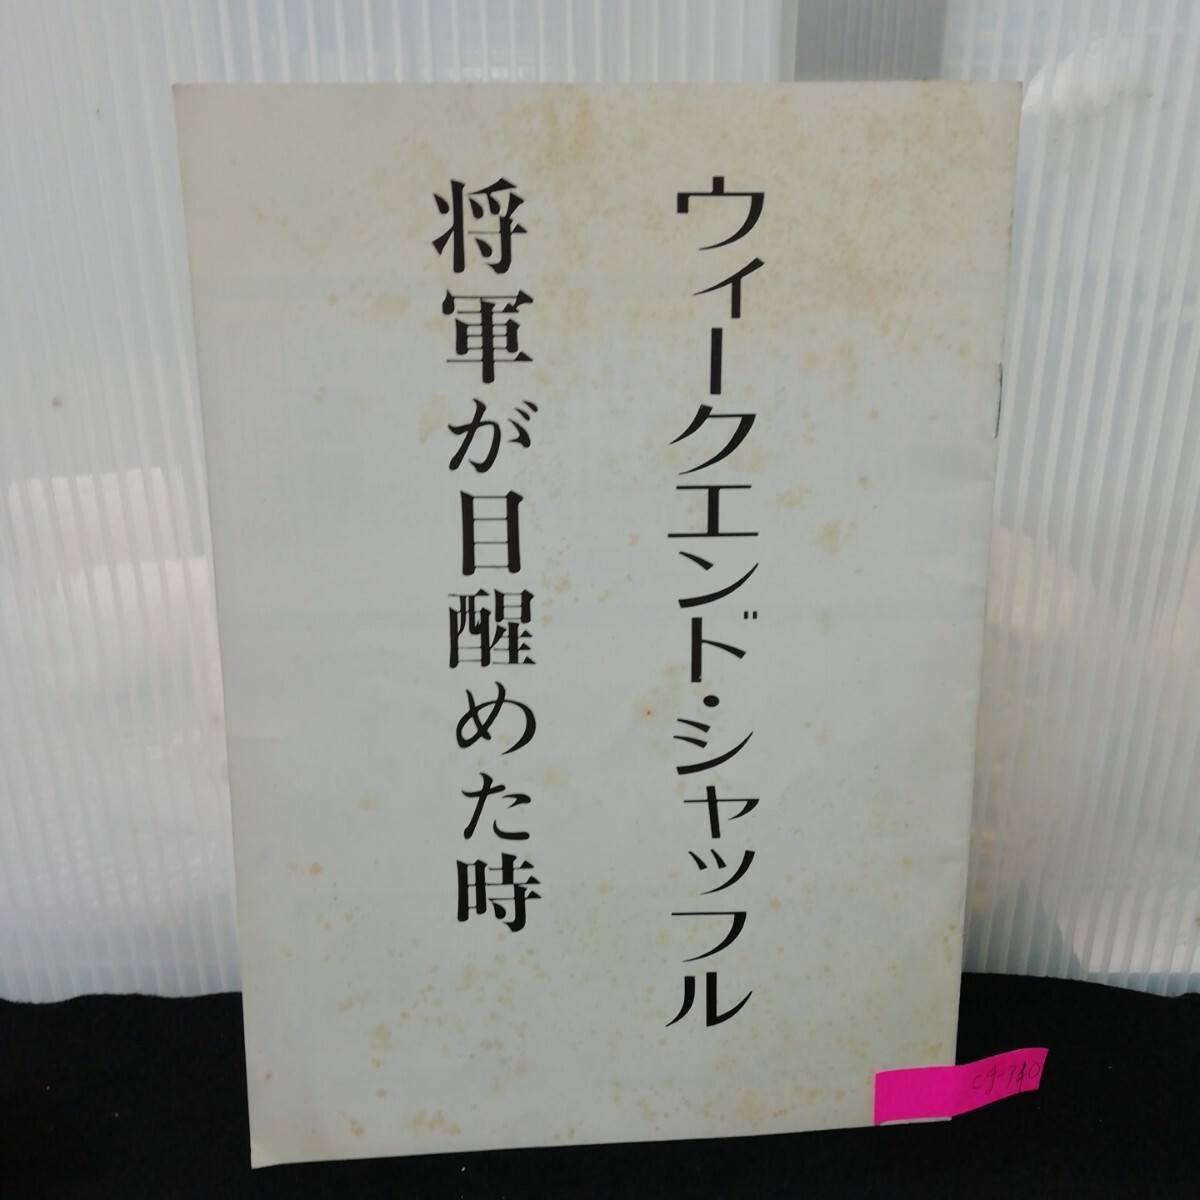 ウィークエンド・シャッフル
将軍が目醒めた時